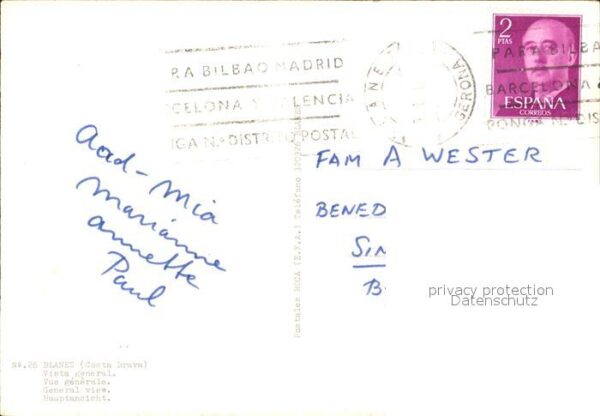 PARA BILBAO MADRID
CELONA Y VALENCIA
NGA N.º DISTRITO POSTAL
GERONA
PARA BILBA
BARCELONA
PONGA N.º DIS
2
PTAS
ESPAÑA
CORREOS
Aad - Mia
Marianne
Annette
Paul
FAM A WESTER
BENED
SIN
B
privacy protection
Datenschutz
Postales ROCA (E.F.A.) Teléfono
Nº.26 BLANES (Costa Brava)
Vista general.
Vue générale.
General view.
Hauptansicht.